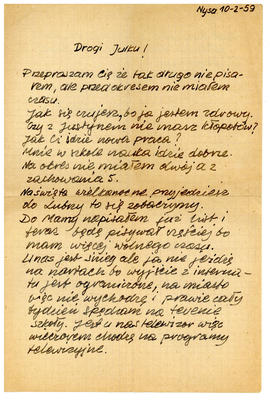 Nysa 10-2-59
Drogi Julku!
Przepraszam Cię że tak długo nie pisa-
łem, ale przed okresem nie miałem
czasu.
Jak się czujesz, bo ja jestem zdrowy.
Czy z Justynem nie masz kłopotów?
Jak Ci idzie nowa praca?
Mnie w szkole nauka idzie dobrze.
Na okres nie miałem dwój a z
zachowania 5.
Na święta wielkanocne przyjedziesz
do Lubny to się zobaczymy.
Do Mamy napisałem już list i
teraz będę pisywał częściej bo
mam więcej wolnego czasu.
U nas jest śnieg ale ja nie jeżdżę
na nartach bo wyjście z interna-
tu jest ograniczone, na miasto
więc nie wychodzę i prawie cały
tydzień spędzam na terenie
szkoły. Jest u nas telewizor więc
wieczorem chodzę na programy
telewizyjne.